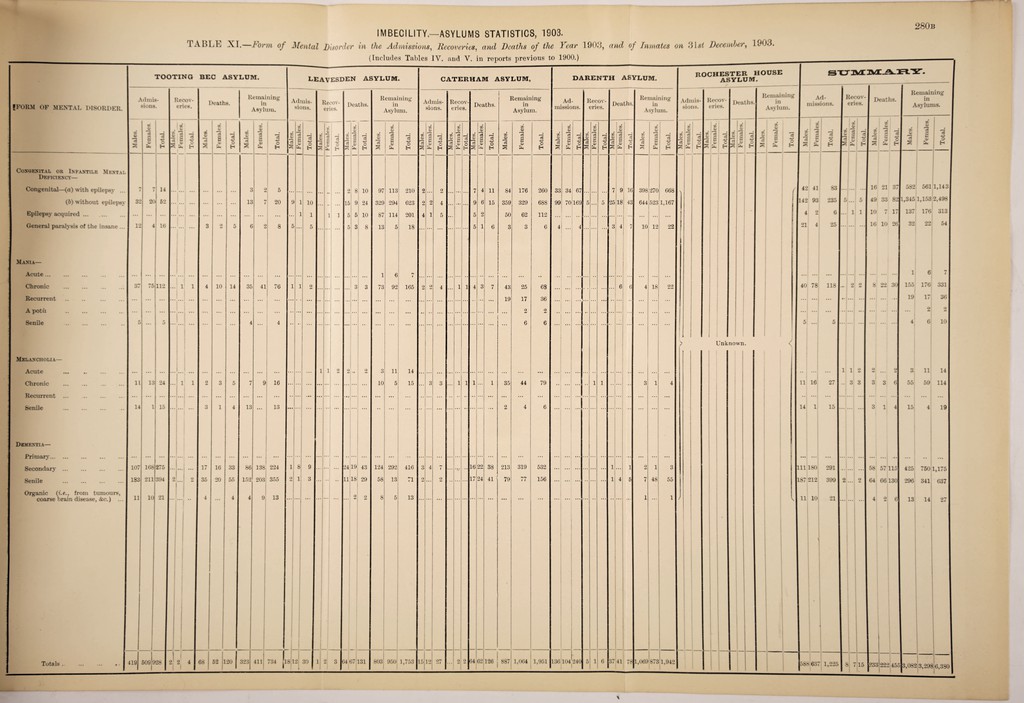 280B
IMBECILITY.—ASYLUMS STATISTICS, 1903.
TABLE XI.—Form of Mental Disorder in the Admissions, Recoveries, and Deaths of the Year 1903, and of Inmates on 31st December, 1903.
(Includes Tables IV. and V. in reports previous to 1900.)
FORM OF MENTAL DISORDER. TOOTING BEC ASYLUM. LEAVESDEN ASYLUM. CATERHAM ASYLUM. DARENTH ASYLUM. ROCHESTER HOUSE ASYLUM. SUMMARY.
Admissions. Recoveries. Deaths. Remaining in Asylum. Admissions. Recoveries. Deaths. Remaining in Asylum. Admissions. Recoveries. Deaths. Remaining in Asylum. Admissions. Recoveries. Deaths. Remaining in Asylum. Admissions. Recoveries. Deaths. Remaining in Asylum. Admissions. Recoveries. Deaths. Remaining in Asylums.
Males. Females. Total. Males. Females. Total. Males. Females. Total. Males. Females. Total.
CONGENITAL OR INFANTILE MENTAL DEFICIENCY—
Congenital—(a) with epilepsy ... 7 7 14 ... ... ... ... ... ... 3 2 5 ... ... ... ... ... ... 2 8 10 97 113 210 2 ... 2 ... ... ... 7 4 11 84 176 260 33 34 67 ... ... ... 7 9 16 398 270 668 42 41 83 ... ... ... 16 21 37 582 561 1,143
(b) without epilepsy 32 20 52 ... ... ... ... ... ... 13 7 20 9 1 10 ... ... ... 15 9 24 329 294 623 2 2 4 ... ... ... 9 6 15 359 329 688 99 70 169 5 ... 5 25 18 43 644 523 1,167 142 93 235 5 ... 5 49 33 82 1,345 1,153 2,498
Epilepsy acquired ... ... 1 1 ... 1 1 5 5 10 87 114 201 4 1 5 ... ... ... 5 2 50 62 112 4 2 6 ... 1 1 10 7 17 137 176 313
General paralysis of the insane ... 12 4 16 ... ... ... 3 2 5 6 2 8 5 ... 5 ... ... ... 5 3 8 13 5 18 ... ... ... 5 1 6 3 3 6 4 ... 4 ... ... ... 3 4 7 10 12 22 21 4 25 ... ... ... 16 10 26 32 22 54
MANIA—
Acute ... ... 1 6 7 ... 1 6 7
Chronic 37 75 112 ... 1 1 4 10 14 35 41 76 1 1 2 ... ... ... ... 3 3 73 92 165 2 2 4 ... 1 1 4 3 7 43 25 68 ... ... ... ... ... ... ... 6 6 4 18 22 40 78 118 ... 2 2 8 22 30 155 176 331
Recurrent ... 19 17 36 ... 19 17 36
A potû ... 2 2 ... 2 2
Senile 5 ... 5 ... 4 ... 4 ... 6 6 ... 5 ... 5 ... 4 6 10
Unknown.
MELANCHOLIA—
Acute ... 1 1 2 2 ... 2 3 11 14 ... 1 1 2 2 ... 2 3 11 14
Chronic 11 13 24 ... 1 1 2 3 5 7 9 16 ... ... ... ... ... ... ... ... ... 10 5 15 ... 3 3 ... 1 1 1 ... 1 35 44 79 ... ... ... ... 1 1 ... ... ... 3 1 4 11 16 27 ... 3 3 3 3 6 55 59 114
Recurrent ...
Senile 14 1 15 ... ... ... 3 1 4 13 ... 13 ... 2 4 6 ... 14 1 15 ... ... ... 3 1 4 15 4 19
DEMENTIA—
Primary ...
Secondary 107 168 275 ... ... ... 17 16 33 86 138 224 1 8 9 ... ... ... 24 19 43 124 292 416 3 4 7 ... ... ... 16 22 38 213 319 532 ... ... ... ... ... ... 1 ... 1 2 1 3 111 180 291 ... ... ... 58 57 115 425 750 1,175
Senile 183 211 394 2 ... 2 35 20 55 152 203 355 2 1 3 ... ... ... 11 18 29 58 13 71 2 ... 2 ... ... ... 17 24 41 79 77 156 ... ... ... ... ... ... 1 4 5 7 48 55 187 212 399 2 ... 2 64 66 130 296 341 637
Organic (i.e., from tumours, coarse brain disease, &c.) ... 11 10 21 ... ... ... 4 ... 4 4 9 13 ... ... ... ... ... ... ... 2 2 8 5 13 ... 1 ... 1 11 10 21 ... ... ... 4 2 6 13 14 27
Totals ... 419 509 928 2 2 4 68 52 120 323 411 734 18 12 30 1 2 3 64 67 131 803 950 1,753 15 12 27 ... 2 2 64 62 126 887 1,064 1,951 136 104 240 5 1 6 37 41 78 1,069 873 1,942 588 637 1,225 8 7 15 233 222 455 3,082 3,298 6,380